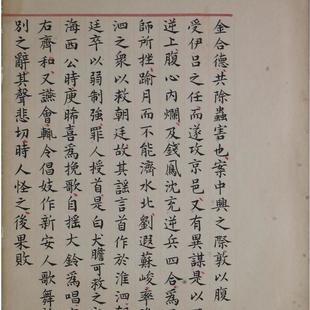 金合德共除蟲害也案中興之際敦以腹
受伊呂之任而遂攻京邑又有異謀是以
逆上腹心內爛及錢鳳沈充逆兵四合爲
師所挫踰月而不能濟水北劉遐蘇峻率
泗之衆以救朝廷故其謡言首作於淮泗朝
廷卒以弱制強罪人授首是白犬膽可救之
海西公時庾晞喜爲挽歌自摇大鈴爲唱
右齊和又讌會輙令倡妓作新安人歌舞
別之辭其聲悲切時人怪之後果敗